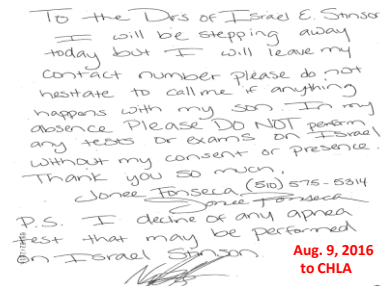 To the Drs of Israel E. Stinson
I will be stepping away
today but I will leave my
contact number please do not
hesitate to call me if anything
happens with my son. In my
absence Please DO NOT perform
any tests or exams on Israel
without my consent or presence.
Thank you so much,
Jonee Fonseca (510) 575-5314
Jonee Fonseca
P.S. I decline of any apnea
test that may be performed
on Israel Stinson.
Aug. 9, 2016
to CHLA